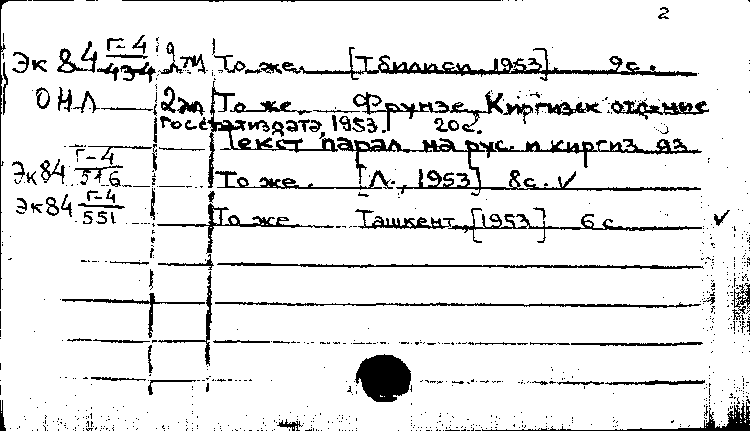 2
Эк 84 Г-4/434 2эк То же. [Тбилиси, 1953]. 9 с.
ОНЛ 2эк То же. Фрунзе, Киргизск отд-ние
Госстатиздата, 1953. 20 с.
Текст парал. на рус. и киргиз. яз
Эк 84 Г-4/516 То же. [Л., 1953] 8 с. ✓
Эк 84 Г-4/551 То же Ташкент, [1953] 6 с ✓